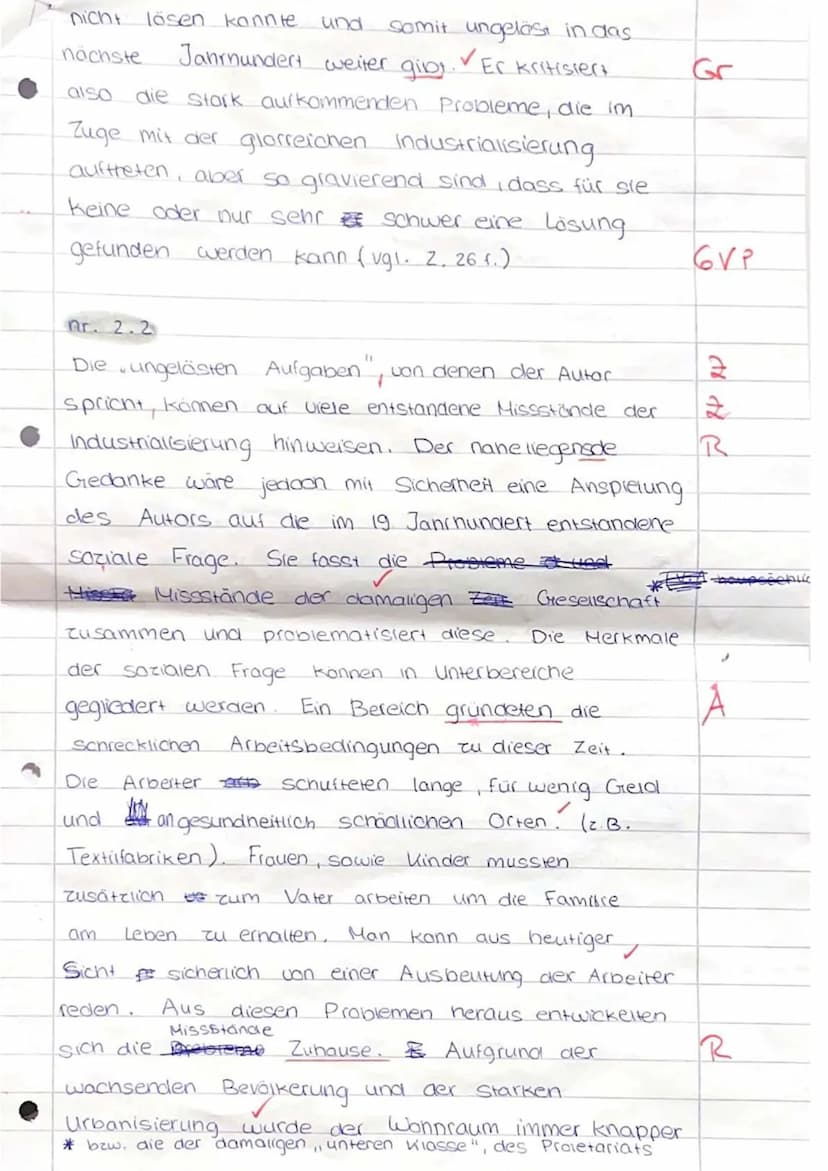 nicht lösen konnte und somit ungelöst in das
nächste Jahrhundert weiter gibt. ✓ Er kritisiert Gr
also die stark aufkommenden Probleme, die im
Zuge mit der glorreichen Industrialisierung
auftreten, aber so gravierend sind, dass für sie
keine oder nur sehr schwer eine Lösung
gefunden werden kann (vgl. Z. 26 f.) 6VP
nr. 2.2
Die „ungelösten Aufgaben", von denen der Autor Z
spricht, können auf viele entstandene Missstände der Z
Industrialisierung hinweisen. Der naheliegensde R
Gedanke wäre jedoch mit Sicherheit eine Anspielung
des Autors auf die im 19. Jahrhundert entstandene
soziale Frage. Sie fasst die Probleme und
Missstände der damaligen Zeit Gesellschaft *
zusammen und problematisiert diese. Die Merkmale
der sozialen Frage können in Unterbereiche
gegliedert werden. Ein Bereich gründeten die A
schrecklichen Arbeitsbedingungen zu dieser Zeit.
Die Arbeiter schufteten lange, für wenig Geld
und an gesundheitlich schädlichen Orten. (z.B.
Textilfabriken). Frauen, sowie Kinder mussten
zusätzlich zum Vater arbeiten um die Familie
am Leben zu erhalten. Man kann aus heutiger
Sicht sicherlich von einer Ausbeutung der Arbeiter
reden. Aus diesen Problemen heraus entwickelten
Missstände
sich die Probleme Zuhause. Aufgrund der R
wachsenden Bevölkerung und der starken
Urbanisierung wurde der Wohnraum immer knapper
* bzw. die der damaligen „unteren Klasse", des Proletariats